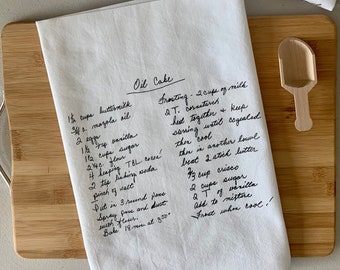 Oil Cake
1½ cups buttermilk
¾ c. mazola oil
2 eggs
1½ tsp vanilla
1½ cups sugar
2¼ c. flour
4 heaping TBL cocoa
2 tsp baking soda
pinch of salt
Put in 3 round pans
Spray pans and dust
with flour.
Bake 18 min at 350°
Frosting - 2 cups of milk
2 T. cornstarch
heat together & keep
stirring until congealed
then cool
this in another bowl
beat 2 stick butter
⅔ cup crisco
2 cups sugar
2 T of vanilla
Add to mixture
Frost when cool!